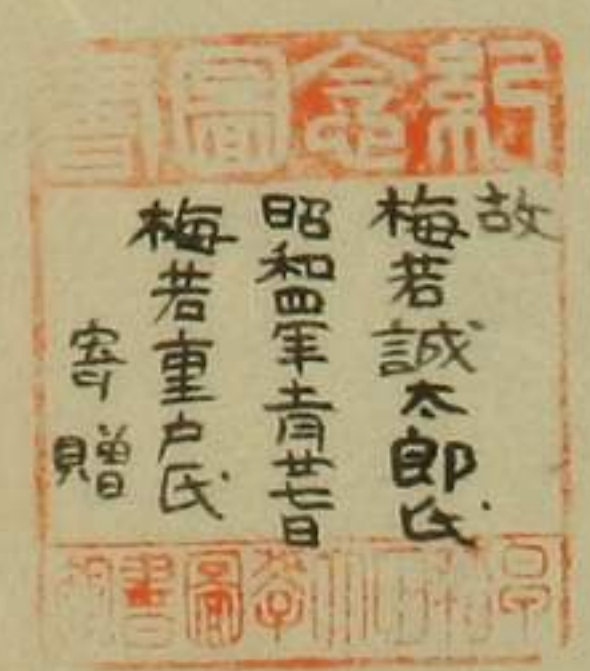 紀念圖書
故
梅若誠太郎氏
昭和四年月廿七日
梅若重戸氏
寄贈
早稲田大學圖書館